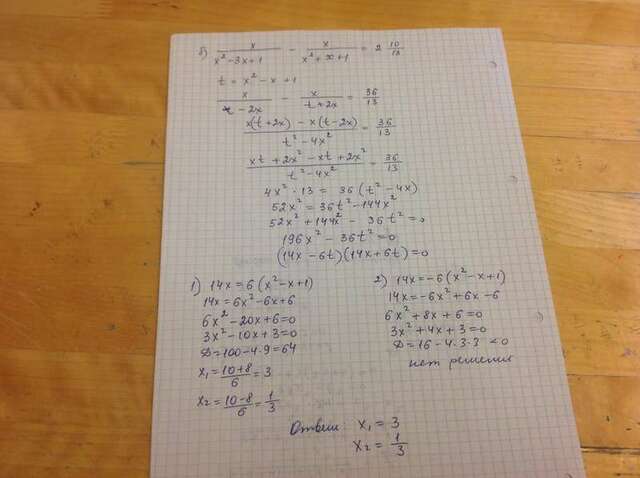 б) x/(x² - 3x + 1) - x/(x² + x + 1) = 2 10/13
t = x² - x + 1
x/(t - 2x) - x/(t + 2x) = 36/13
(x(t + 2x) - x(t - 2x))/(t² - 4x²) = 36/13
(xt + 2x² - xt + 2x²)/(t² - 4x²) = 36/13
4x² · 13 = 36(t² - 4x)
52x² = 36t² - 144x²
52x² + 144x² - 36t² = 0
196x² - 36t² = 0
(14x - 6t)(14x + 6t) = 0
1) 14x = 6(x² - x + 1)
14x = 6x² - 6x + 6
6x² - 20x + 6 = 0
3x² - 10x + 3 = 0
D = 100 - 4 · 9 = 64
x₁ = (10 + 8)/6 = 3
x₂ = (10 - 8)/6 = 1/3
2) 14x = -6(x² - x + 1)
14x = -6x² + 6x - 6
6x² + 8x + 6 = 0
3x² + 4x + 3 = 0
D = 16 - 4 · 3 · 3 < 0
нет решения
Ответ x₁ = 3
x₂ = 1/3